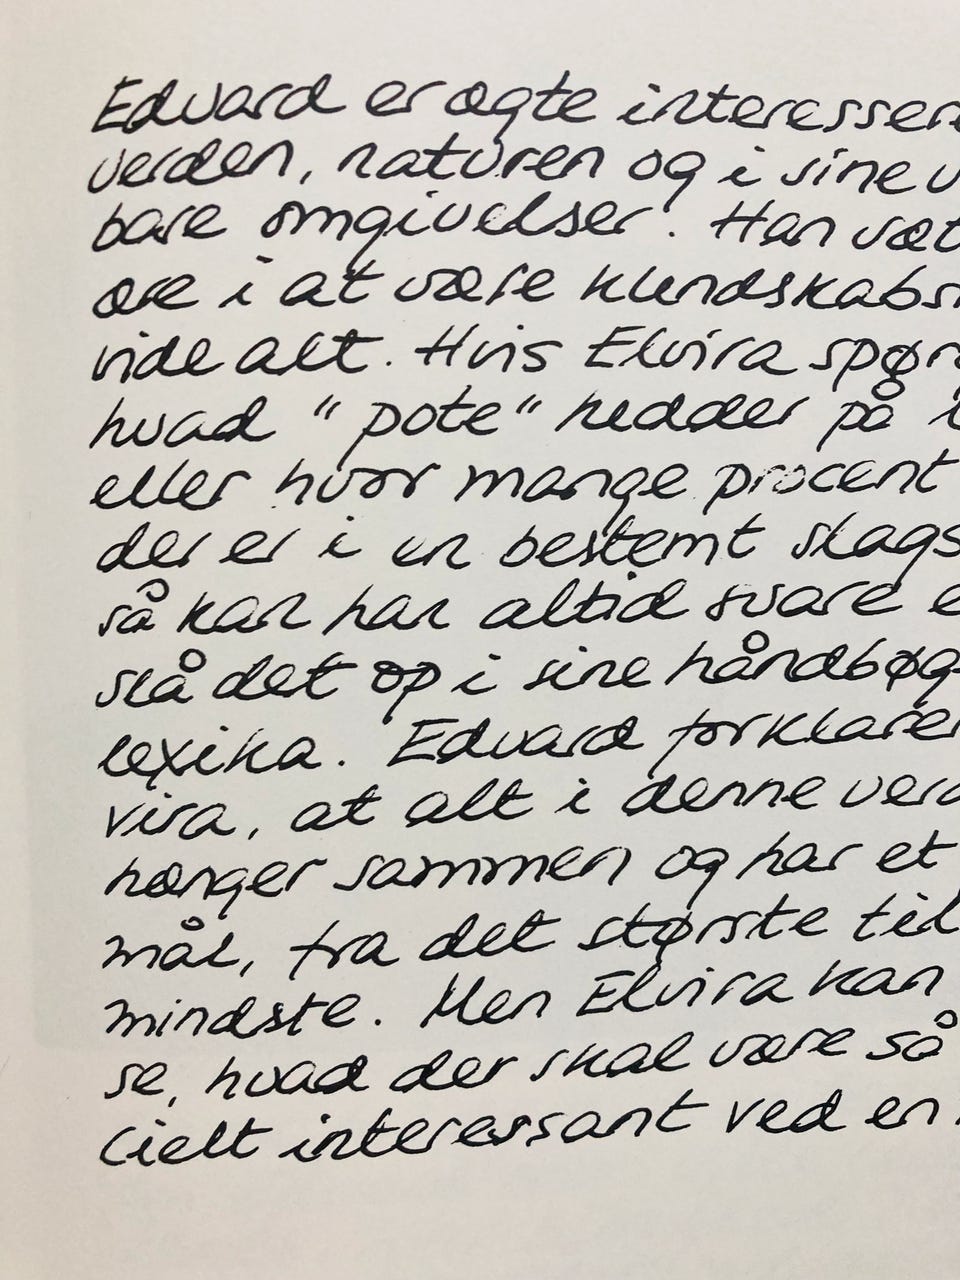 Edvard er ægte interesser
verden, naturen og i sine u
bare omgivelser. Han sæt
ære i at være kundskabs
vide alt. Hvis Elvira spør
hvad "pote" hedder på
eller hvor mange procent
der er i en bestemt slags
så kan han altid svare e
slå det op i sine håndbøg
lexika. Edvard forklarer
vira, at alt i denne verd
hænger sammen og har et
mål, fra det største til
mindste. Men Elvira kan
se, hvad der skal være så
cielt interessant ved en